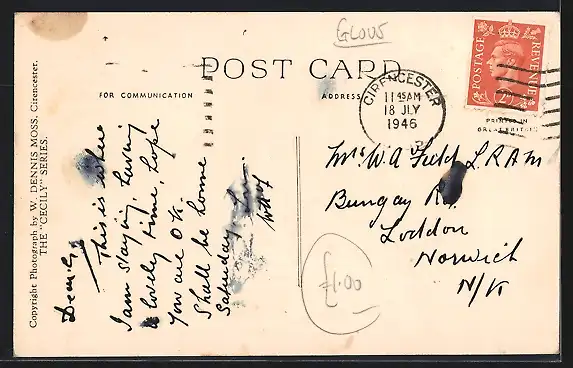 GLOUS
POST CARD
FOR COMMUNICATION
ADDRESS
POSTAGE
REVENUE
2D
CIRENCESTER
11 45AM
18 JLY
1946
PRINTED IN
GREAT BRITAIN
Copyright Photograph by W. DENNIS MOSS, Cirencester.
THE "CECILY" SERIES.
Dear G,
This is where
I am staying, having
a lovely time, hope
you are O.K.
Shall be home
Saturday
Mr W A Field L.R.A.M
Bungay Rd.
Loddon
Norwich
N/K
£1.00